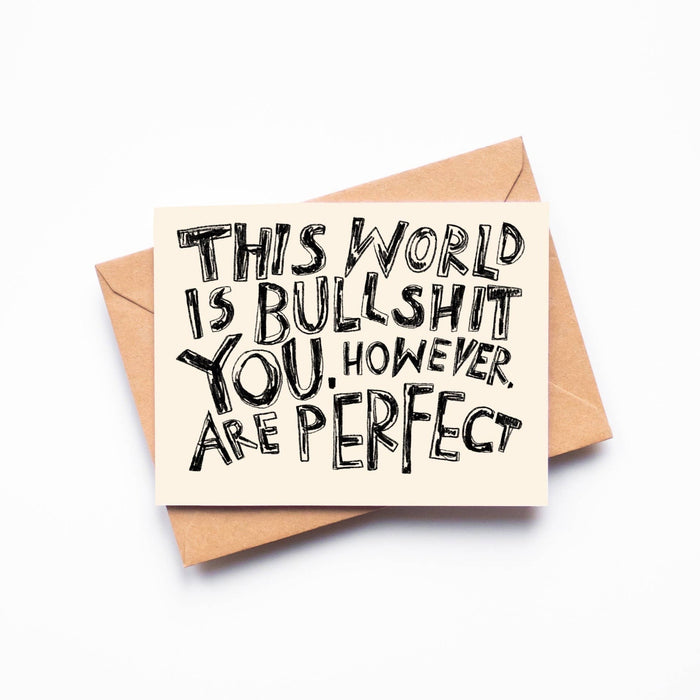 THIS WORLD
IS BULLSHIT
YOU, HOWEVER,
ARE PERFECT